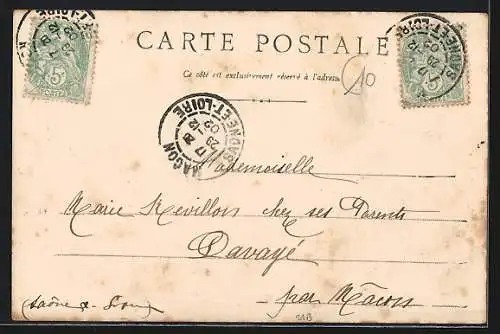 CARTE POSTALE
Ce côté est exclusivement réservé à l'adresse
MACON
17 20
29-12
02
SAONE-ET-LOIRE
Mademoiselle
Marie Revillon chez ses Parents
Davayé
par Mâcon
(Saône & Loire)